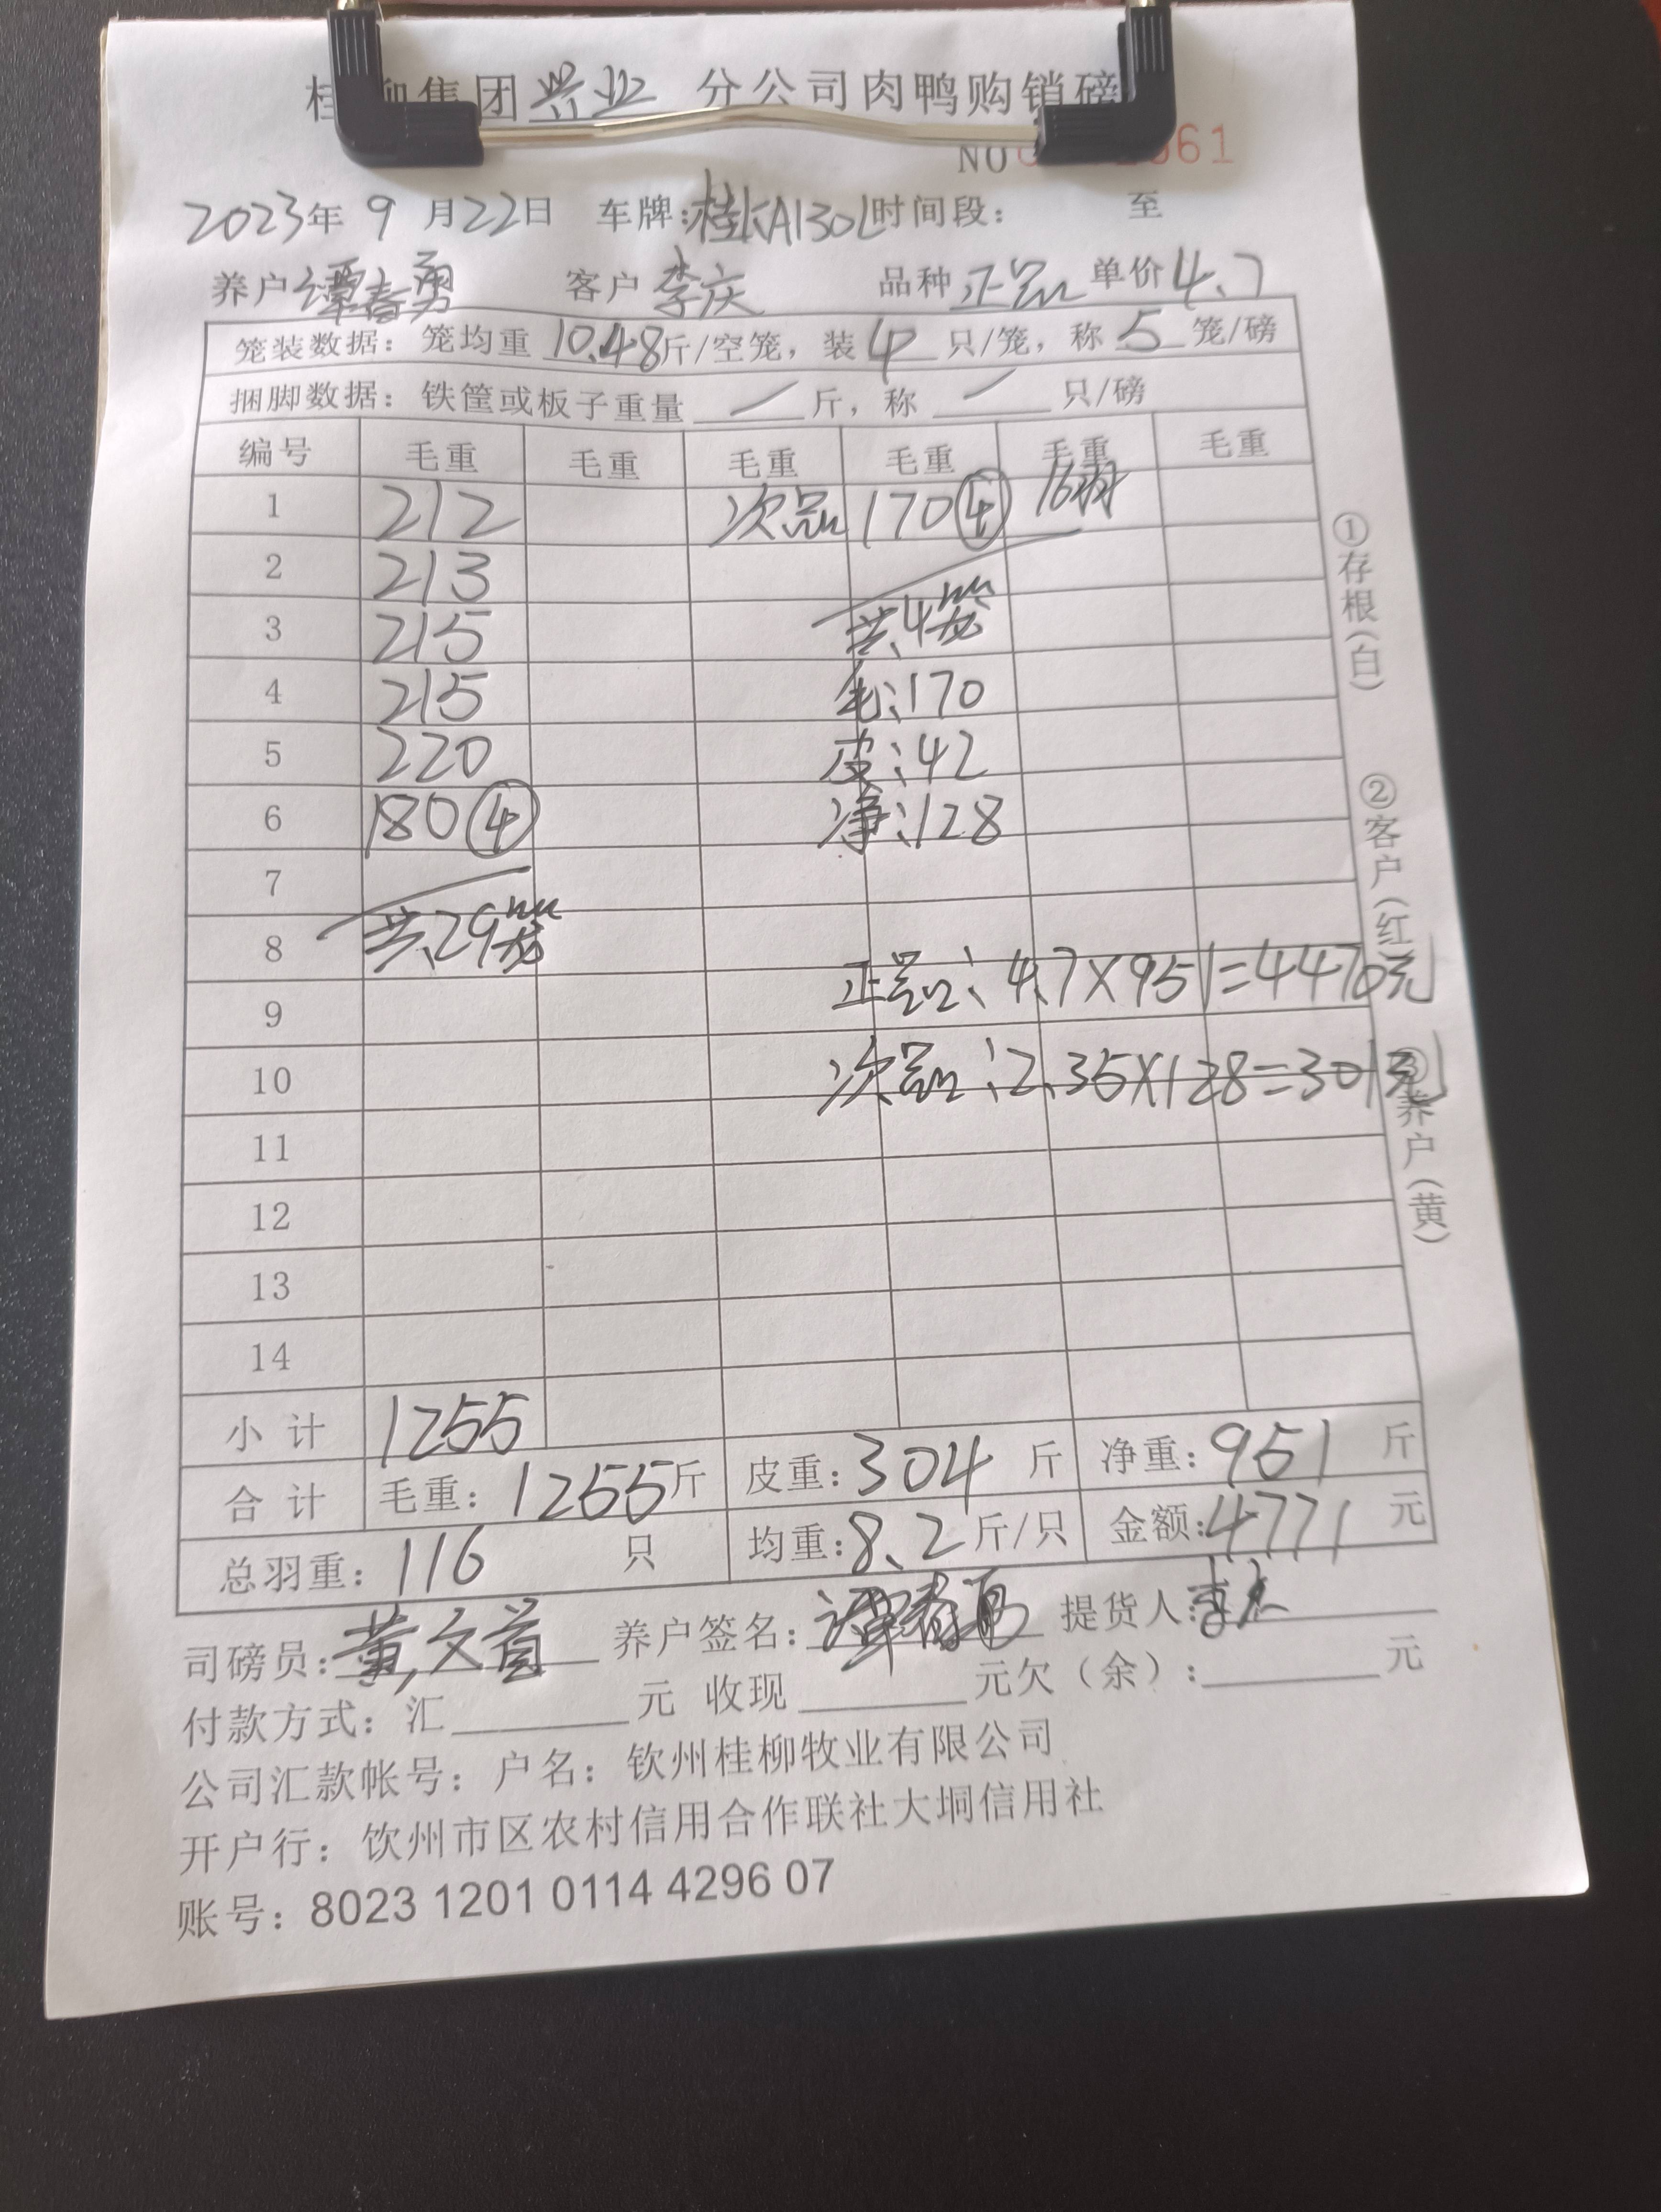 集团兴业 分公司肉鸭购销磅
NO 61
2023年 9 月22日 车牌:桂KA130L时间段: 至
养户谭春勇 客户李庆 品种正品 单价4.7
笼装数据:笼均重 10.48斤/空笼,装4 只/笼,称 5 笼/磅
捆脚数据:铁筐或板子重量 / 斤,称 / 只/磅
编号 毛重 毛重 毛重 毛重 毛重 毛重
1 212 次品 170④ 16羽
2 213
3 215 共4笼
4 215 毛:170
5 220 皮:42
6 180④ 净:128
7
8 共29笼
9 正品:4.7×951=4470元
10 次品:2.35×128=301元
11
12
13
14
小计 1255
合计 毛重:1255斤 皮重:304 斤 净重:951 斤
总羽重:116 只 均重:8.2斤/只 金额:4771 元
司磅员:黄文首 养户签名:谭春勇 提货人:
付款方式:汇 元 收现 元欠(余): 元
公司汇款帐号:户名:钦州桂柳牧业有限公司
开户行:钦州市区农村信用合作联社大垌信用社
账号:8023 1201 0114 4296 07
①存根(白)
②客户(红)
③养户(黄)